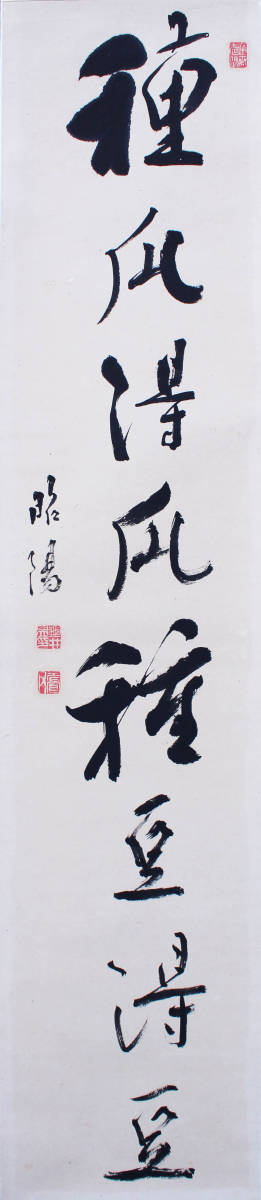 種瓜得瓜種豆得豆
昭陽